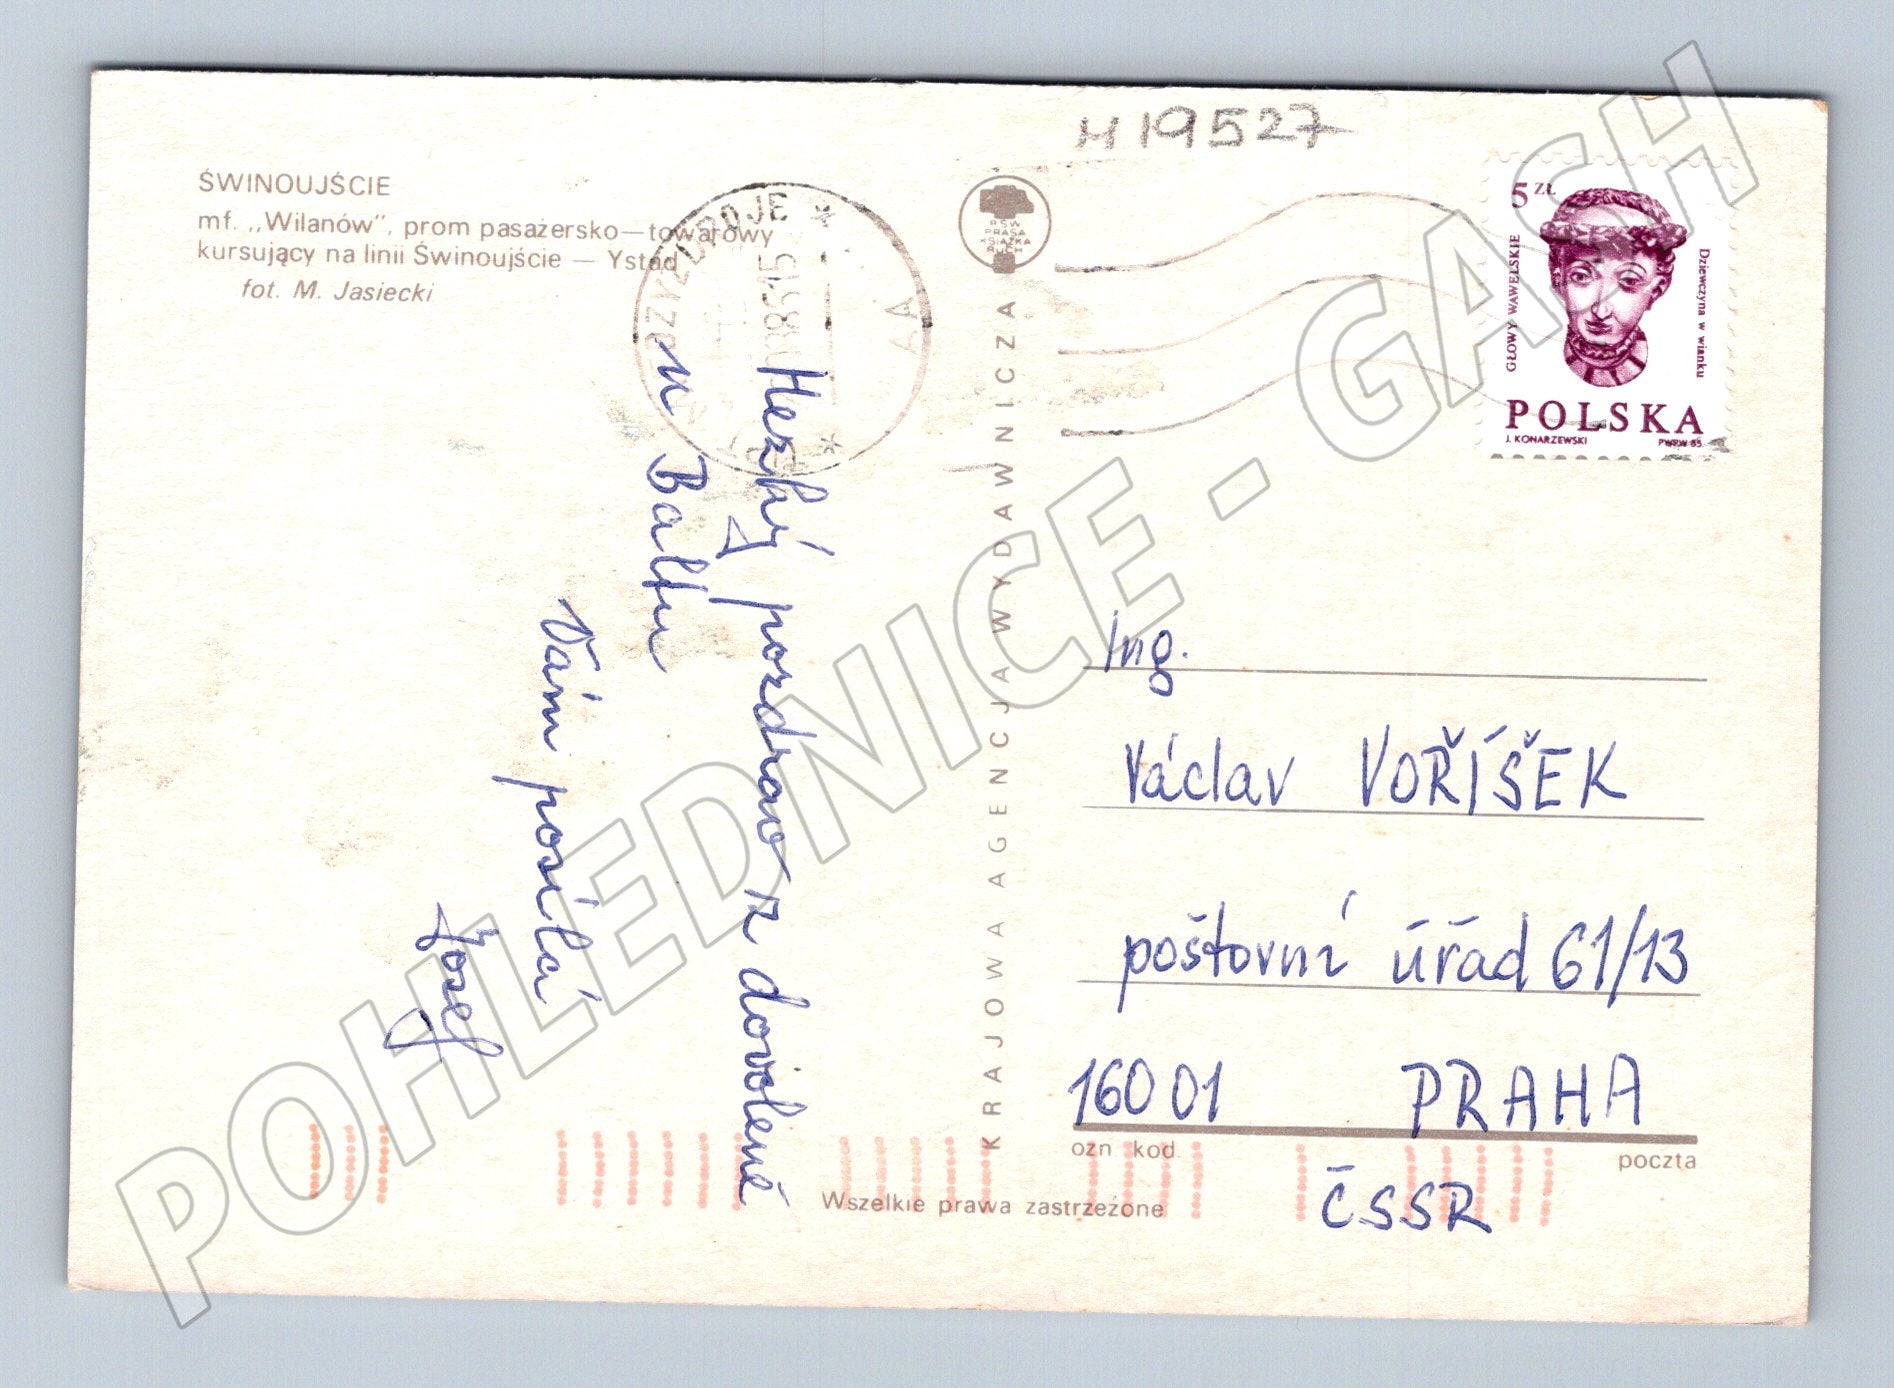 H 19527
ŚWINOUJŚCIE
mf. ,,Wilanów", prom pasażersko—towarowy
kursujący na linii Świnoujście — Ystad
fot. M. Jasiecki
Hezký pozdrav z dovolené
u Baltu
Vám posílá
Josef
RSW
PRASA
KSIĄŻKA
RUCH
KRAJOWA AGENCJA WYDAWNICZA
5 ZŁ
GŁOWY WAWELSKIE
Dziewczyna w wianku
POLSKA
J. KONARZEWSKI PWPW 85
Ing.
Václav VOŘÍŠEK
poštovní úřad 61/13
160 01 PRAHA
ozn kod poczta
ČSSR
Wszelkie prawa zastrzeżone
POHLEDNICE - GASH